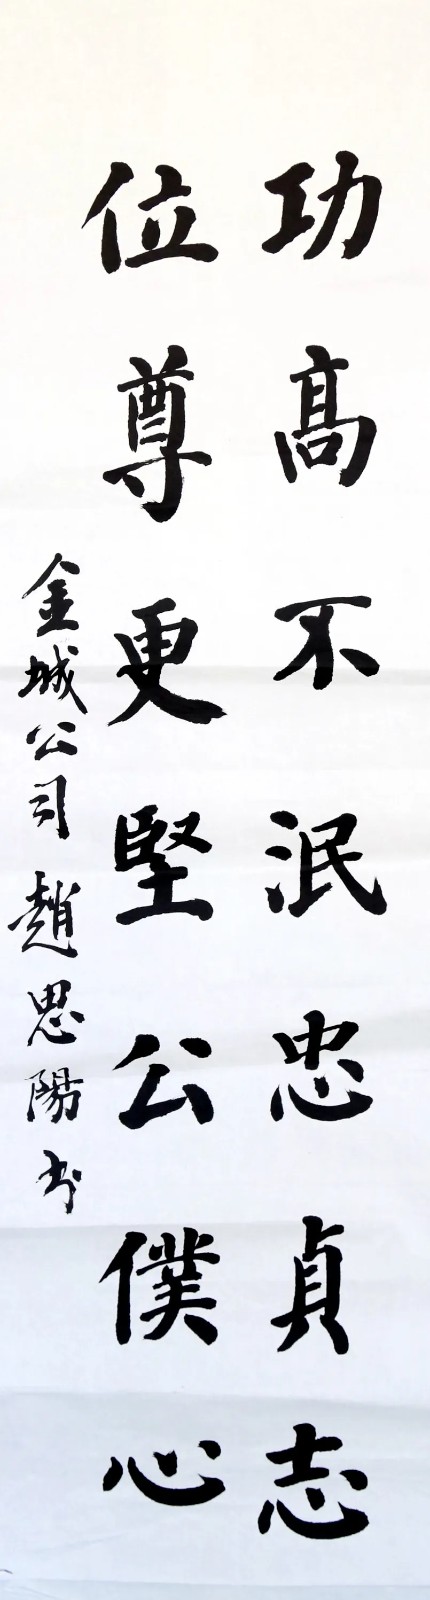 功高不泯忠貞志
位尊更堅公僕心
金城公司趙思陽书